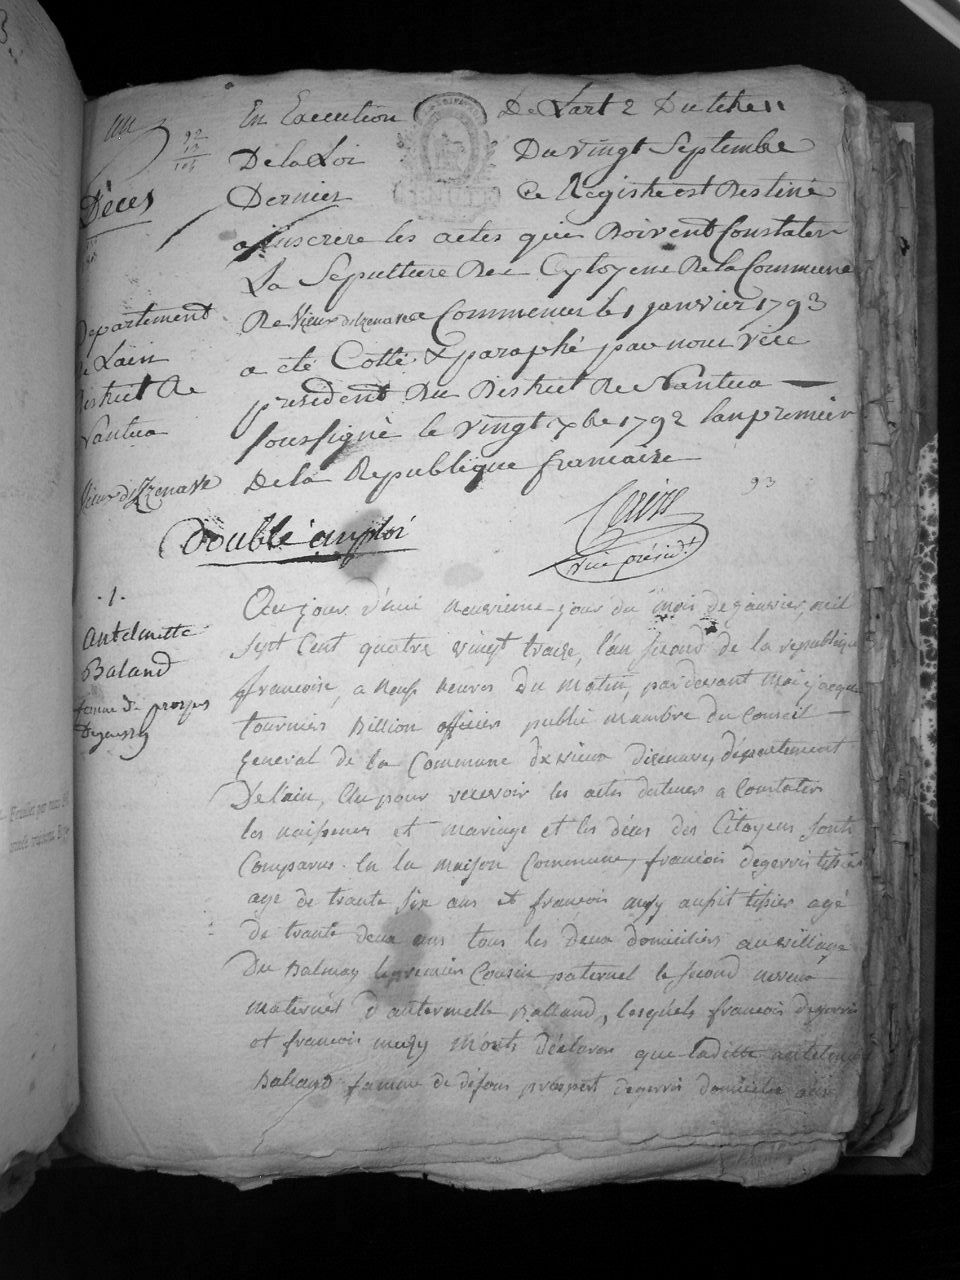 un
92
13
105
Décès
Departement
De Lain
District De
Nantua
Vieux dizenave
En Execution De Lart 2 Du titre 11
De la Loi Du vingt Septembre
Dernier Ce Registre est Destiné
a inscrere les actes qui Doivent Constater
La Sepulture Des Cytoyens De la Commune
De Vieux dizenave a Commencer le 1 janvier 1793
a été Cotté & paraphé par nous vice
president Du District De Nantua
soussigné le vingt xbre 1792 lan premier
De la Republique francaise
93
vice présidt
Double amploi
.1.
antelmette
Baland
famme de prosper
Degerry
Aujour d'hui neuvieme jour du mois de janvier mil
sept Cent quatre vingt traize, l'an second de la republique
francoise, a neuf heures Du matin, pardevant moi jacque
tournier Billion officier publié mambre du Conseil
General de la Commune de vieux dizenave, département
De lain, Elu pour recevoir les actes datines a Constater
les naissences et mariage et les déces des Citoyens sonts
Comparus En la maison Commune, francois degerri tissier
age de trante six ans et françois mury aussit tissier agé
de trante deux ans tous les deux domiciliers au village
Du Balmay le premier Cousin paternel le second neveux
maternel d'antermette Balland, lesquels francois degerri
et francois mury m'onts déclares que ladite antelmette
Balland famme de défeus prospert degerri domicilie au